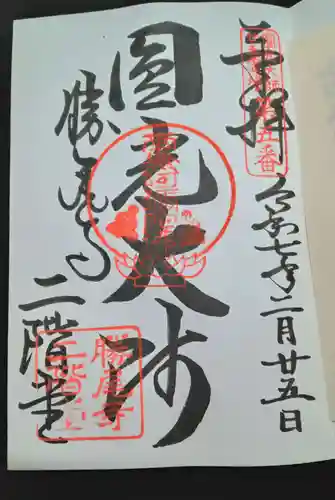 奉拝
令和七年二月廿五日
圓光大師
勝尾寺
二階堂
五番
勝尾寺
二階堂